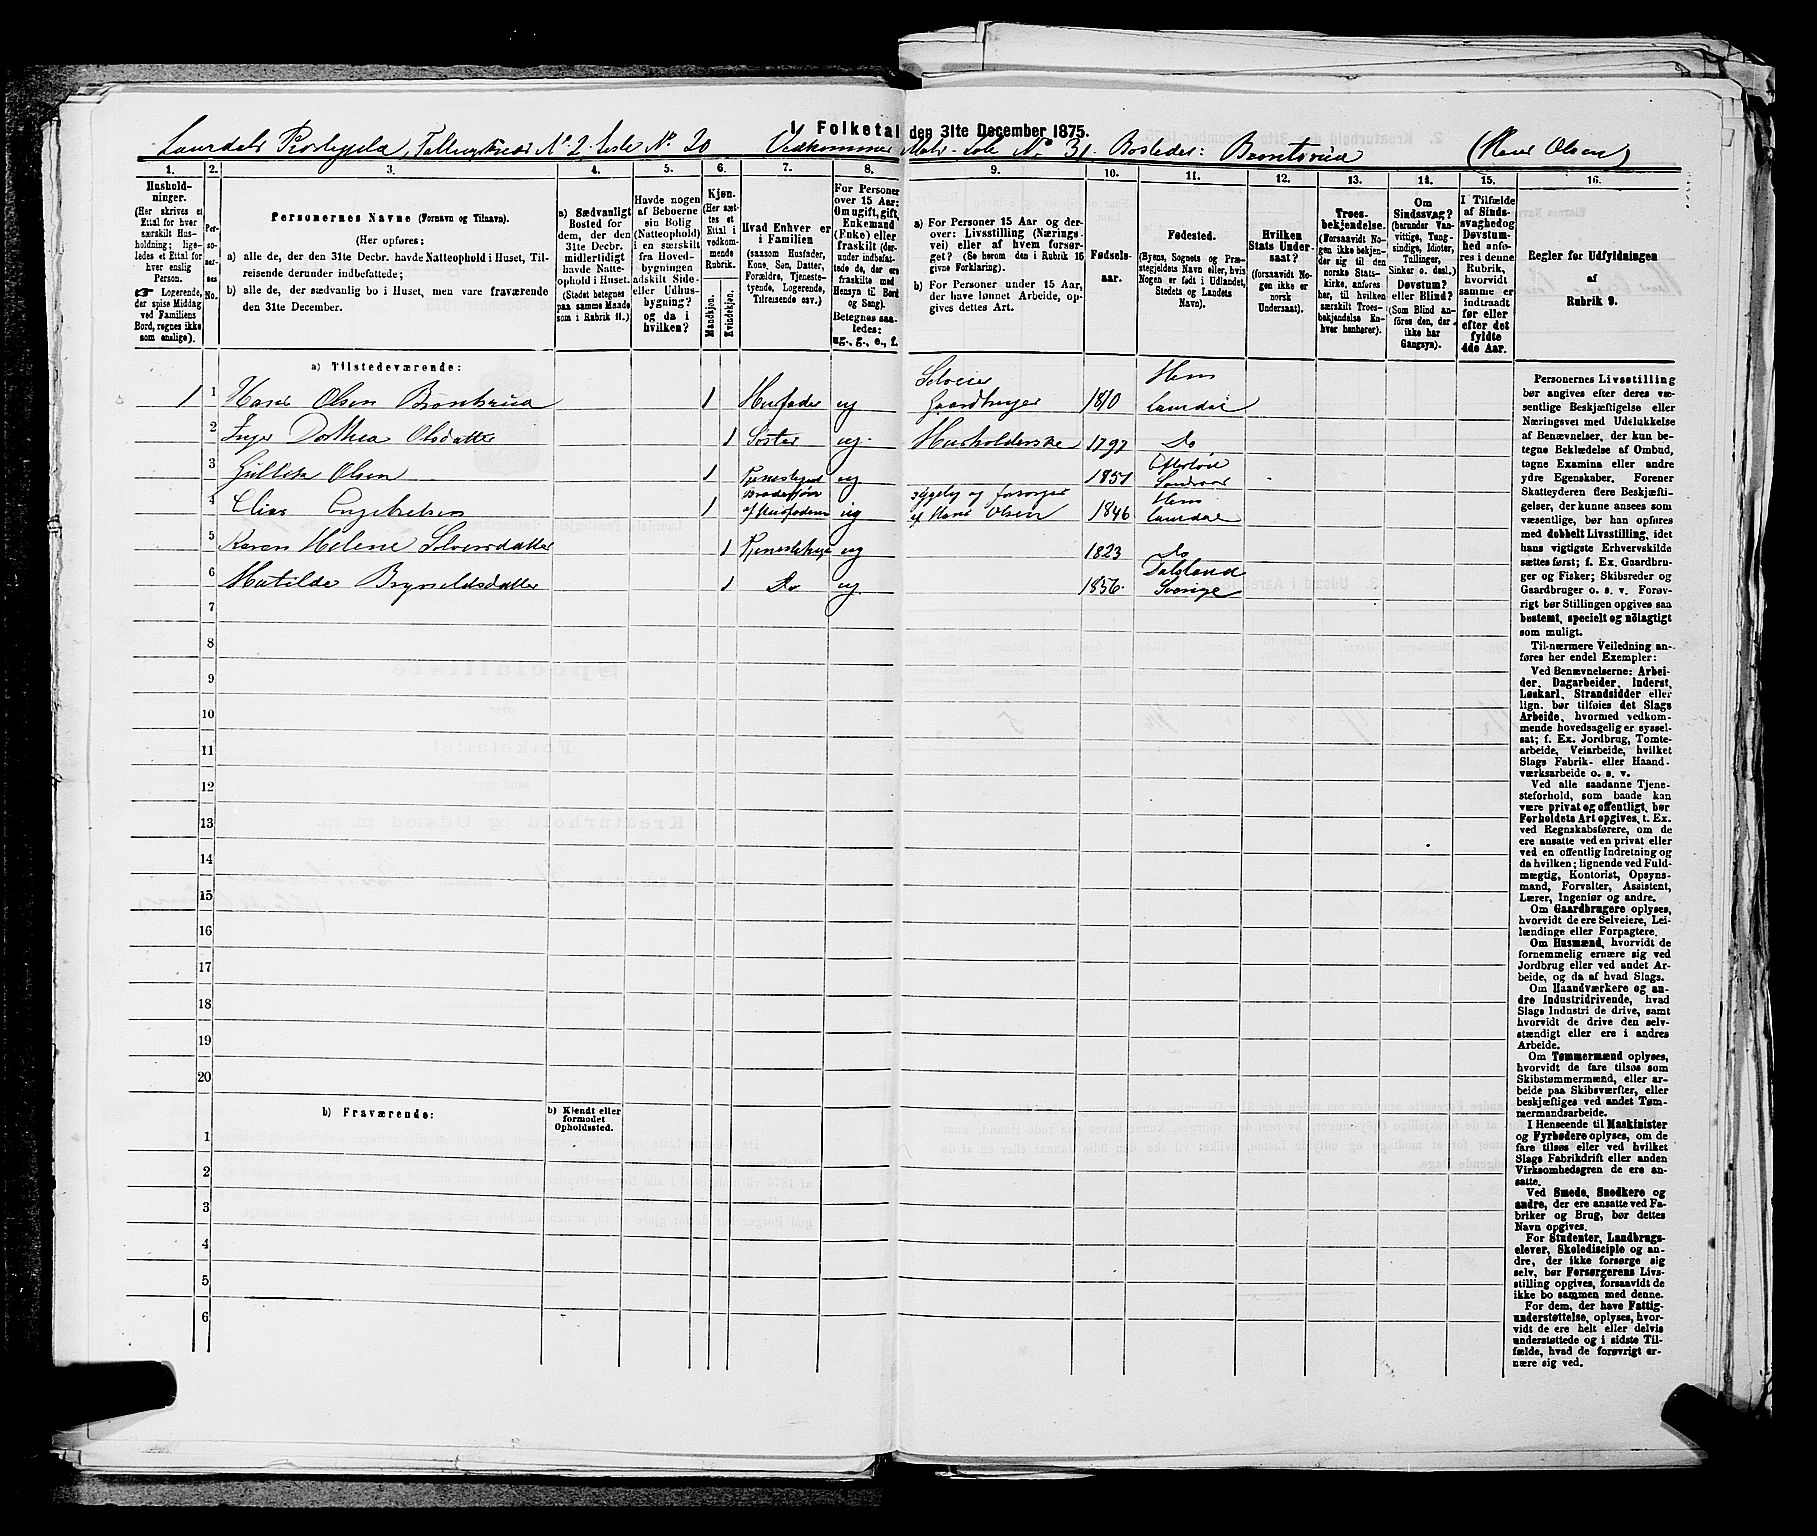 1. Folketal den 31te December 1875.
Laurdals Præstegjeld, Tællingskreds No 2 Liste No 20 Vedkommer Matr. Løbe No 31 Bostedet: (Hans Olsen)
1. 2. 3. 4. 5. 6. 7. 8. 9. 10. 11. 12. 13. 14. 15. 16.
Husholdninger.
(Her skrives et
Ettal for hver
særskilt Husholdning;
ligeledes et Ettal for
hver enslig
Person.
☞ Logerende,
der spise Middag
ved Familiens
Bord, regnes ikke
som enslige).
Personernes No.
Personernes Navne (Fornavn og Tilnavn).
(Her opføres:
a) alle de, der den 31te Decbr. havde Natteophold i Huset, Tilreisende
derunder indbefattede;
b) alle de, der sædvanlig bo i Huset, men vare fraværende
den 31te December.
a) Sædvanligt
Bosted for
dem, der den
31te Decbr.
midlertidigt
havde Natteophold
i Huset.
(Stedet betegnes
paa samme Maade
som i Rubrik 11.)
Havde nogen
af Beboerne
sin Bolig
(Natteophold)
i en særskilt
fra Hovedbygningen
adskilt Side-
eller Udhusbygning?
og da i
hvilken?
Kjøn.
(Her sættes
et
Ettal i
vedkommende
Rubrik.
Mandkjøn.
Kvindekjøn.
Hvad Enhver er
i Familien
(saasom Husfader,
Kone, Søn, Datter,
Forældre, Tjenestetyende,
Logerende,
Tilreisende osv.)
For Personer
over 15 Aar:
Om ugift, gift,
Enkemand
(Enke) eller
fraskilt (derunder
indbefattede
de, der ere
fraskilte med
Hensyn til Bord
og Seng).
Betegnes saaledes:
ug., g., e., f.
a) For Personer 15 Aar og derover:
Livsstilling (Næringsvei)
eller af hvem forsørget?
(Se herom den i Rubrik 16
givne Forklaring).
b) For Personer under 15 Aar,
der have lønnet Arbeide, opgives
dettes Art.
Fødselsaar.
Fødested.
(Byens, Sognets og Præstegjeldets
Navn eller, hvis
Nogen er født i Udlandet,
Stedets og Landets
Navn).
Hvilken
Stats Undersaat?
(forsaavidt Nogen
ikke er
norsk
Undersaat).
Troesbekjendelse.
(Forsaavidt Nogen
ikke bekjender
sig til den
norske Statskirke,
anføres
her, til hvilken
særskilte Troesbekjendelse
Enhver
henhører).
Om
Sindssvag?
(herunder Vanvittige,
Tungsindige,
Idioter,
Tullinger,
Sinker o. desl.)
Døvstum?
eller Blind?
(Som Blind anføres
den, der
ikke har
Gangsyn).
I Tilfælde
af Sindssvaghed
og
Døvstumhed
anføres
i denne
Rubrik,
hvorvidt
samme er
indtraadt
før eller
efter det
fyldte
4de Aar.
Regler for Udfyldningen
af
Rubrik 9.
a) Tilstedeværende:
1 1 Hans Olsen 1 Husfader ug Selveier Gaardbruger 1810 Hem Laurdal
2 Inger Dorthea Olsdatter 1 Søster ug. Husholderske 1797 Do
3 Gullik Olsen 1 ug 1851
4 Elias Engebretsen 1 Brodersøn af Husfaderen ug af Hans Olsen 1846 Hem Laurdal
5 Karen Helene 1 ug 1823 Do
6 Matilde Brynildsdatter 1 Do ug. 1856. Dalsland Sverige
7
8
9
10
11
12
13
14
15
16
17
18
19
20
b) Fraværende:
b) Kjendt eller
formodet
Opholdssted.
1
2
3
4
5
6
Personernes Livsstilling
bør angives efter deres væsentlige
Beskjæftigelse eller
Næringsvei med Udelukkelse
af Benævnelser, der kun betegne
Beklædelse af Ombud,
tagne Examina eller andre
ydre Egenskaber. Forener
Skatteyderen flere Beskjæftigelser,
der kunne ansees som
væsentlige, bør han opføres
med dobbelt Livsstilling, idet
hans vigtigste Erhvervskilde
sættes først; f. Ex. Gaardbruger
og Fisker; Skibsreder og
Gaardbruger o. s. v. Forøvrigt
bør Stillingen opgives saa
bestemt, specielt og nøiagtigt
som muligt.
Til nærmere Veiledning anføres
her endel Exempler:
Ved Benævnelserne: Arbeider,
Dagarbeider, Inderst,
Løskarl, Strandsidder eller
lign. bør tilføies det Slags
Arbeide, hvormed vedkommende
hovedsagelig er sysselsat;
f. Ex. Jordbrug, Tomtearbeide,
Veiarbeide, hvilket
Slags Fabrik- eller Haandværksarbeide
o. s. v.
Ved alle saadanne Tjenesteforhold,
som baade kan
være privat og offentligt, bør
Forholdets Art opgives, t. Ex.
ved Regnskabsførere, om de
ere ansatte ved en privat eller
ved en offentlig Indretning og
da hvilken; lignende ved Fuldmægtig,
Kontorist, Opsynsmand,
Forvalter, Assistent,
Lærer, Ingeniør og andre.
Om Gaardbrugere oplyses,
hvorvidt de ere Selveiere, Leilændinge
eller Forpagtere.
Om Husmænd, hvorvidt de
fornemmelig ernære sig ved
Jordbrug eller ved andet Arbeide,
og da af hvad Slags.
Om Haandværkere og andre
Industridrivende, hvad
Slags Industri de drive, samt
hvorvidt de drive den selvstændigt
eller ere i andres
Arbeide.
Om Tømmermænd oplyses,
hvorvidt de fare tilsøs som
Skibstømmermænd, eller arbeide
paa Skibsværfter, eller
beskjæftiges ved andet Tømmermandsarbeide.
I Henseende til Maskinister
og Fyrbødere oplyses, om de
fare tilsøs eller ved hvilket
Slags Fabrikdrift eller anden
Virksomhedsgren de ere ansatte.
Ved Smede, Snedkere og
andre, der ere ansatte ved Fabriker
og Brug, bør dettes
Navn opgives.
For Studenter, Landbrugselever,
Skoledisciple og andre,
der ikke forsørge sig
selv, bør Forsørgerens Livsstilling
opgives, forsaavidt de
ikke bo sammen med denne.
For dem, der have Fattigunderstøttelse,
oplyses, hvorvidt
de ere helt eller delvis
understøttede og i sidste Tilfælde,
hvad de forøvrigt ernære
sig ved.